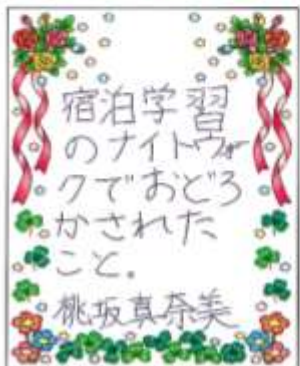 宿泊学習
のナイトウォー
クでおどろ
かされた
こと。
桃坂真奈美